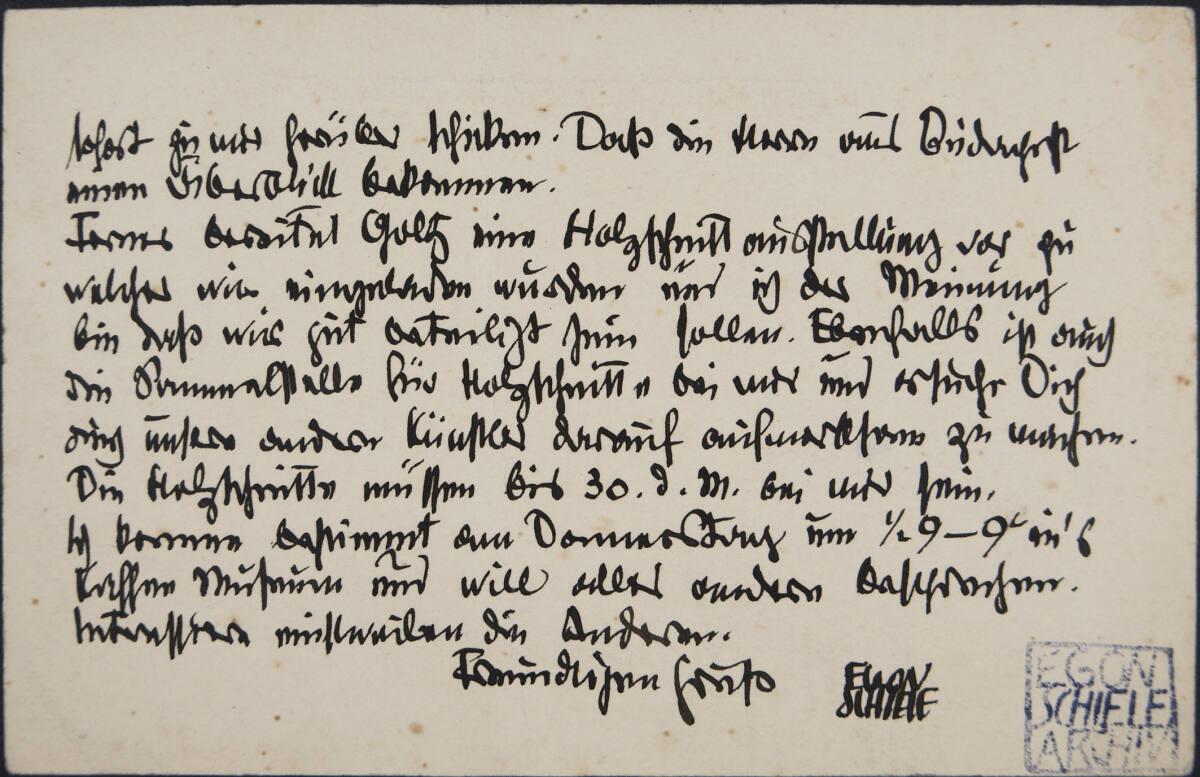 sofort zu mir herüber schicken. Daß die Herrn aus Budapest
einen Überblick bekommen.
Ferner bereitet Goltz eine Holzschnittausstellung vor zu
welcher wir eingeladen wurden und ich der Meinung
bin daß wir gut beteiligt sein sollen. Ebenfalls ist auch
die Sammelstelle für Holzschnitte bei mir und ersuche Dich
auch unsere andern Künstler darauf aufmerksam zu machen.
Die Holzschnitte müssen bis 30. d. M. bei mir sein.
Ich komme bestimmt am Donnerstag um ½ 9–9 in's
Kaffee Museum und will alles andere besprechen.
Interessiere einstweilen die Anderen.
Freundlichen Gruß EGON
SCHIELE
EGON
SCHIELE
ARCHIV